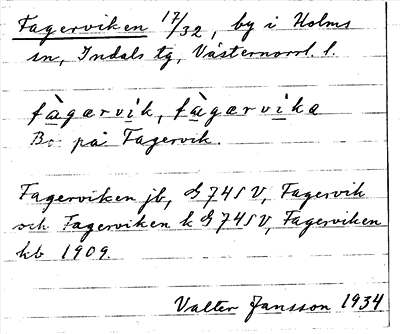 Fagerviken 17/32, by i Holms
sn, Indals tg, Västernorrl. l.
fàgærvik, fàgærvika
Bo på Fagervik.
Fagerviken jb, G 745 V, Fagervik
och Fagerviken k G 745 V, Fagerviken
kb 1909.
Valter Jansson 1934